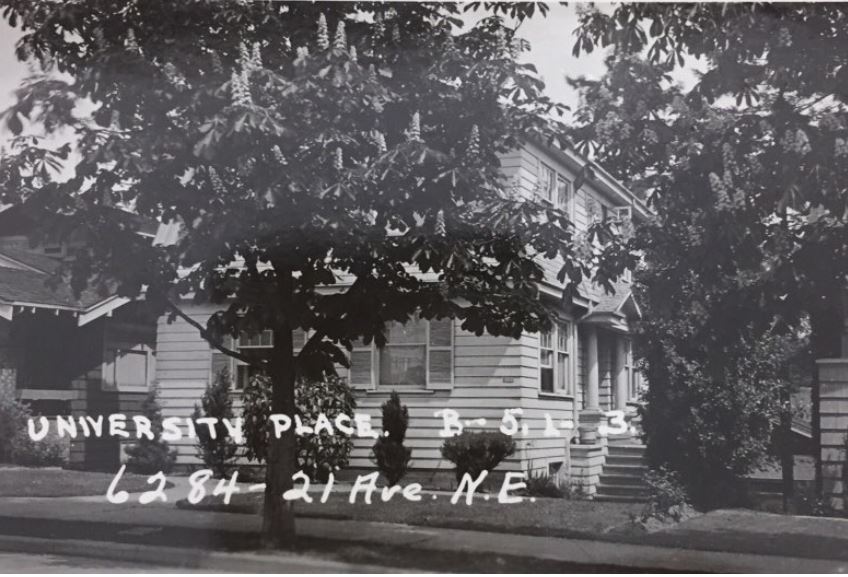 UNIVERSITY PLACE. B-5, L-3.
6284-21 Ave. N.E.